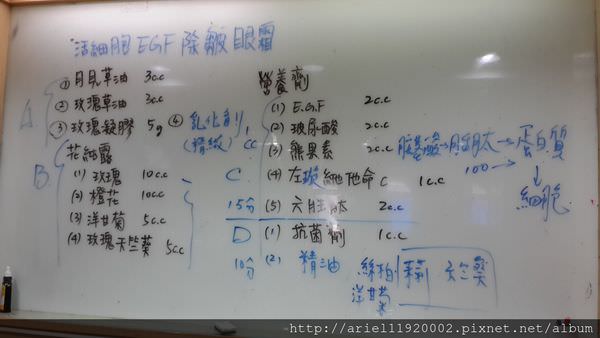 活細胞EGF除皺眼霜
A.
① 月見草油 3c.c
② 玫瑰草油 3c.c
③ 玫瑰凝膠 5g
④ 乳化劑
(精緻) 1cc
B.
花細露
(1) 玫瑰 10c.c
(2) 橙花 10c.c
(3) 洋甘菊 5c.c
(4) 玫瑰天竺葵 5cc
營養劑
C.
(1) E.G.F 2c.c
(2) 玻尿酸 2c.c
(3) 熊果素 2c.c
(4) 左璇維他命C 1c.c
(5) 六胜肽 2c.c
15分
D
(1) 抗菌劑 1c.c
(2) 精油
10分
絲柏
洋甘菊
天竺葵
胺基酸→胜肽→蛋白質
100→
↓
細胞
http://ariel11920002.pixnet.net/album